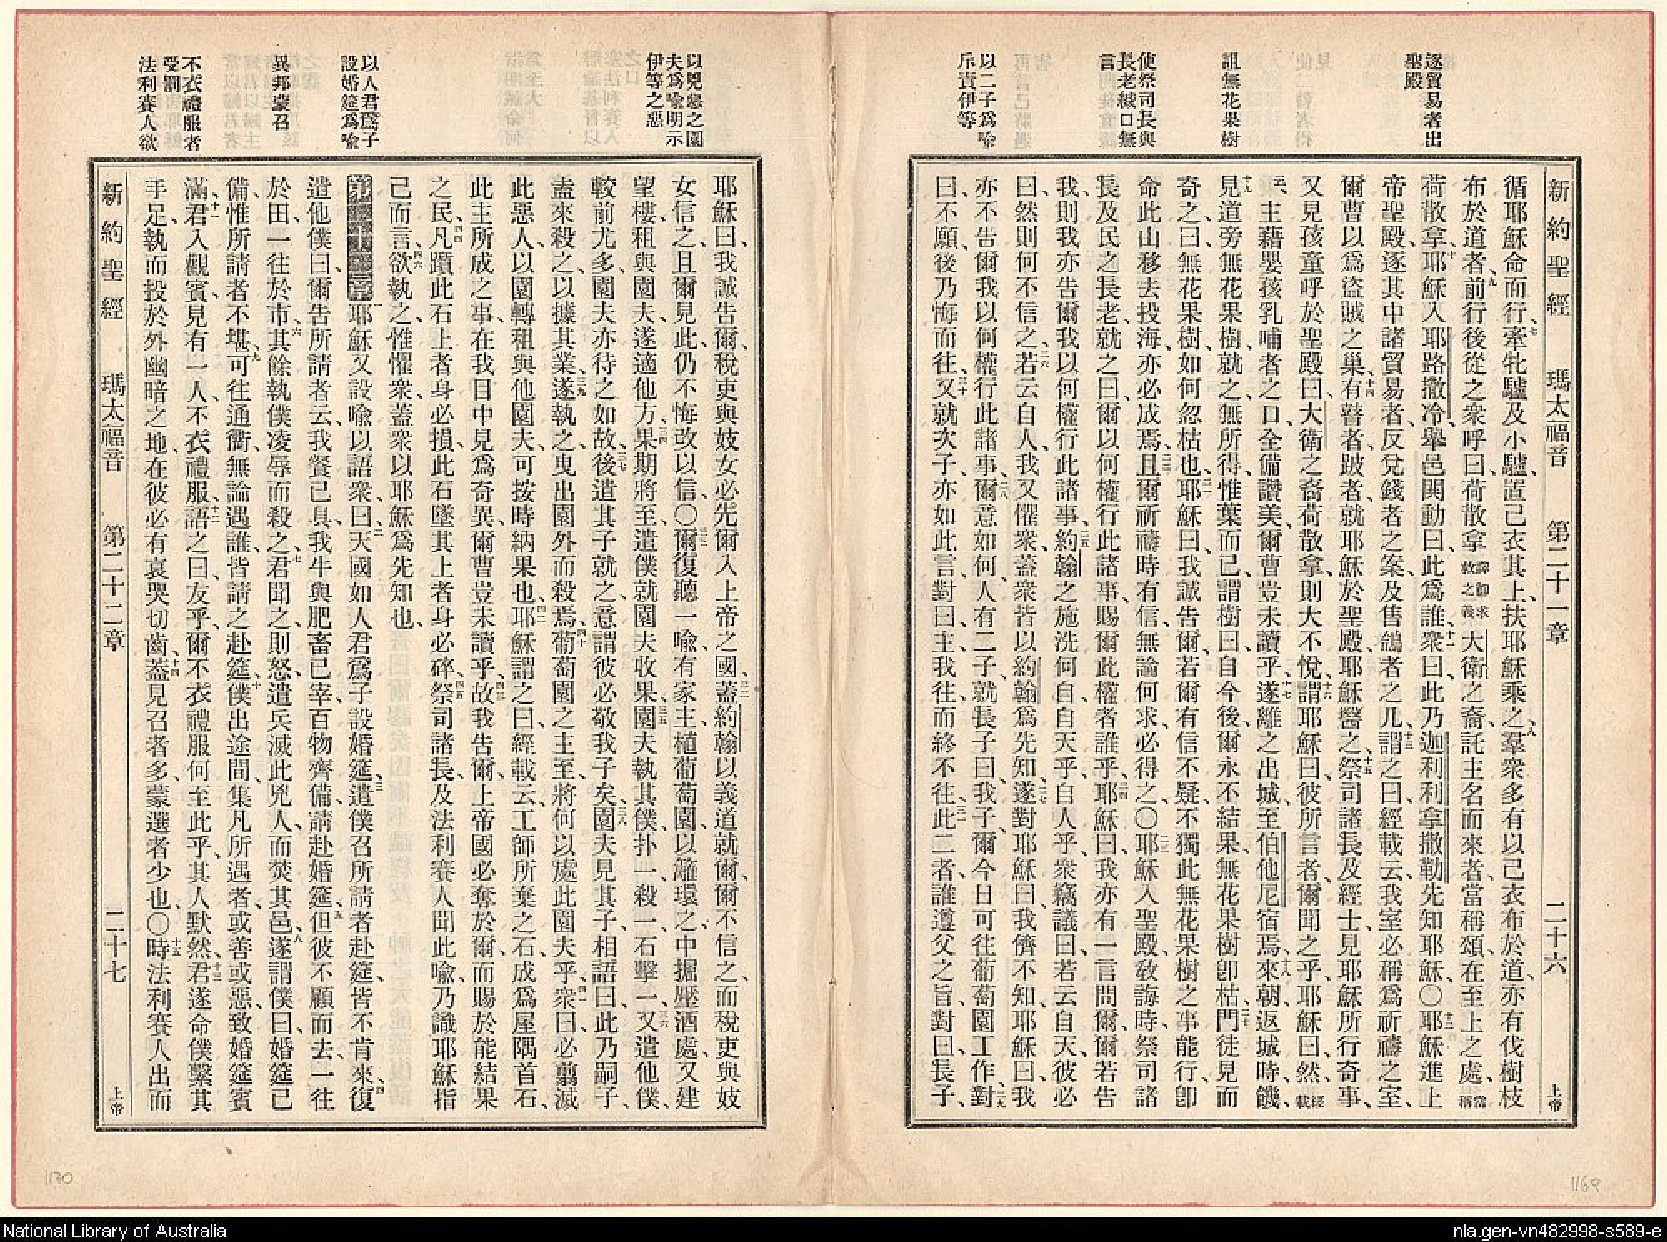 逐貿易者出
聖殿
詛無花果樹
使祭司長與
長老緘口無
言
以二子爲喩
斥責伊等
新約聖經 瑪太福音 第二十一章 二十六 上帝
循耶穌命而行、七牽牝驢及小驢、置己衣其上、扶耶穌乘之、八羣衆多有以己衣布於道、亦有伐樹枝
布於道者、九前行後從之衆呼曰、荷散拿、譯卽求救之義大衛之裔、託主名而來者、當稱頌、在至上之處、當稱
荷散拿、十耶穌入耶路撒冷、舉邑閧動曰、此爲誰、十一衆曰、此乃迦利利拿撒勒先知耶穌、〇十二耶穌進上
帝聖殿、逐其中諸貿易者、反兌錢者之案、及售鴿者之几、十三謂之曰、經載云、我室必稱爲祈禱之室、
爾曹以爲盜賊之巢、十四有瞽者跛者、就耶穌於聖殿、耶穌醫之、十五祭司諸長及經士、見耶穌所行奇事、
又見孩童呼於聖殿曰、大衛之裔荷散拿、則大不悅、十六謂耶穌曰、彼所言者、爾聞之乎、耶穌曰、然、經載
云、主藉嬰孩乳哺者之口、全備讚美、爾曹豈未讀乎、十七遂離之出城、至伯他尼宿焉、十八來朝返城時饑、
十九見道旁無花果樹、就之、無所得、惟葉而已、謂樹曰、自今後爾永不結果、無花果樹卽枯、二十門徒見而
奇之曰、無花果樹、如何忽枯也、二一耶穌曰、我誠告爾、若爾有信不疑、不獨此無花果樹之事能行、卽
命此山移去投海、亦必成焉、二二且爾祈禱時有信、無論何求、必得之、〇二三耶穌入聖殿敎誨時、祭司諸
長及民之長老就之曰、爾以何權行此諸事、賜爾此權者誰乎、二四耶穌曰、我亦有一言問爾、爾若告
我、則我亦告爾我以何權行此諸事、二五約翰之施洗何自、自天乎、自人乎、衆竊議曰、若云自天、彼必
曰、然則何不信之、二六若云自人、我又懼衆、蓋衆皆以約翰爲先知、二七遂對耶穌曰、我儕不知、耶穌曰、我
亦不告爾我以何權行此諸事、二八爾意如何、人有二子、就長子曰、我子、爾今日可往葡萄園工作、二九對
曰、不願、後乃悔而往、三十又就次子、亦如此言、對曰、主、我往、而終不往、三一此二者、誰遵父之旨、對曰、長子、
以兇惡之園
夫爲喩明示
伊等之惡
以人君爲子
設婚筵爲喩
異邦蒙召
不衣禮服者
受罰
法利賽人欲
耶穌曰、我誠告爾、稅吏與妓女、必先爾入上帝之國、三二蓋約翰以義道就爾、爾不信之、而稅吏與妓
女信之、且爾見此、仍不悔改以信、〇三三爾復聽一喩、有家主植葡萄園、以籬環之、中掘壓酒處、又建
望樓、租與園夫、遂適他方、三四果期將至、遣僕就園夫收果、三五園夫執其僕、扑一、殺一、石擊一、三六又遣他僕、
較前尤多、園夫亦待之如故、三七後遣其子就之、意謂彼必敬我子矣、三八園夫見其子、相語曰、此乃嗣子、
盍來殺之、以據其業、三九遂執之、曳出園外而殺焉、四十葡萄園之主至、將何以處此園夫乎、四一衆曰、必翦滅
此惡人、以園轉租與他園夫、可按時納果也、四二耶穌謂之曰、經載云、工師所棄之石、成爲屋隅首石、
此主所成之事、在我目中見爲奇異、爾曹豈未讀乎、四三故我告爾、上帝國必奪於爾、而賜於能結果
之民、四四凡躓此石上者、身必損、此石墜其上者、身必碎、四五祭司諸長及法利賽人聞此喩、乃識耶穌指
己而言、四六欲執之、惟懼衆、蓋衆以耶穌爲先知也、
第二十二章耶穌又設喩以語衆曰、二天國如人君爲子設婚筵、三遣僕召所請者赴筵、皆不肯來、四復
遣他僕曰、爾告所請者云、我餐已具、我牛與肥畜已宰、百物齊備、請赴婚筵、五但彼不顧而去、一往
於田、一往於市、六其餘執僕凌辱而殺之、七君聞之則怒、遣兵滅此兇人、而焚其邑、八遂謂僕曰、婚筵已
備、惟所請者不堪、九可往通衢、無論遇誰、皆請之赴筵、十僕出途間、集凡所遇者、或善或惡、致婚筵賓
滿、十一君入觀賓、見有一人、不衣禮服、十二語之曰、友乎、爾不衣禮服、何至此乎、其人默然、十三君遂命僕、繫其
手足、執而投於外幽暗之地、在彼必有哀哭切齒、十四蓋見召者多、蒙選者少也、〇十五時法利賽人出而
新約聖經 瑪太福音 第二十二章 二十七 上帝
1170
1169
National Library of Australia
nla.gen-vn482998-s589-e